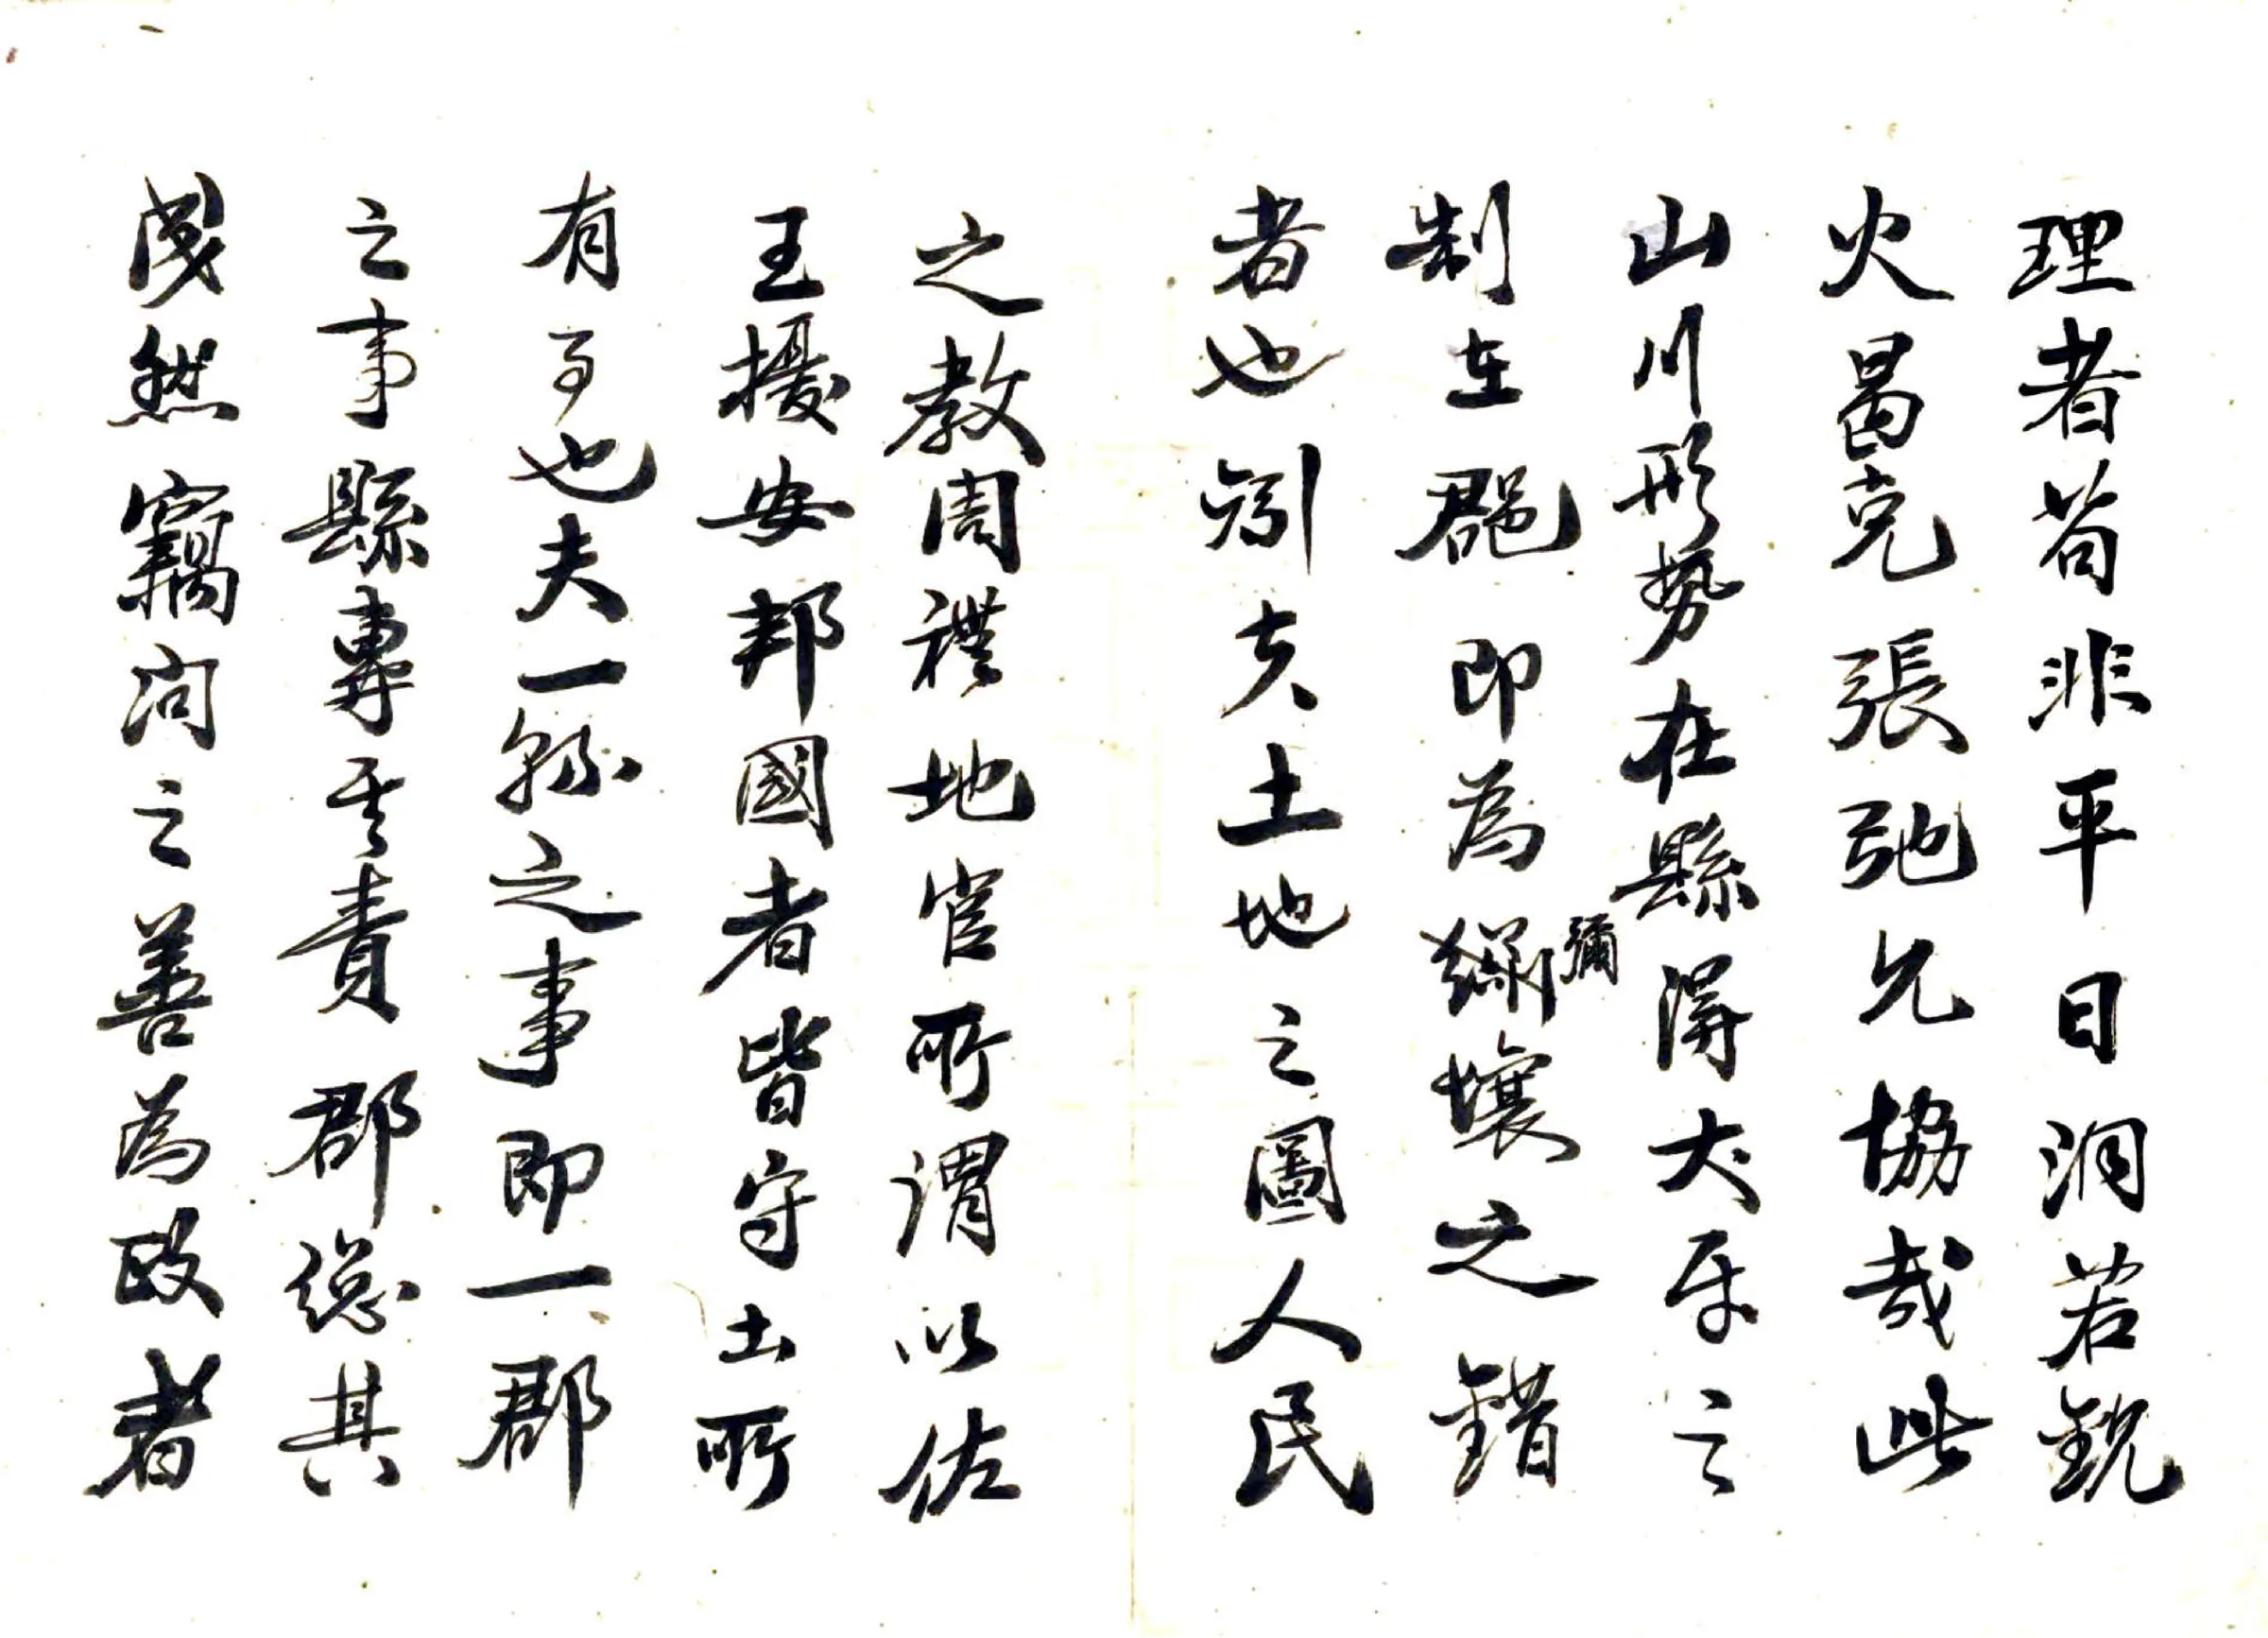 理者苟非平日洞若觀
火曷克張弛允協哉此
山川形勢在縣得犬牙之
制在郡即為繡壤之錯
彌
者也矧夫土地之圖人民
之教周禮地官所謂以佐
王擾安邦國者皆守土所
有事也夫一縣之事即一郡
之事縣專其責郡總其
成然竊聞之善為政者